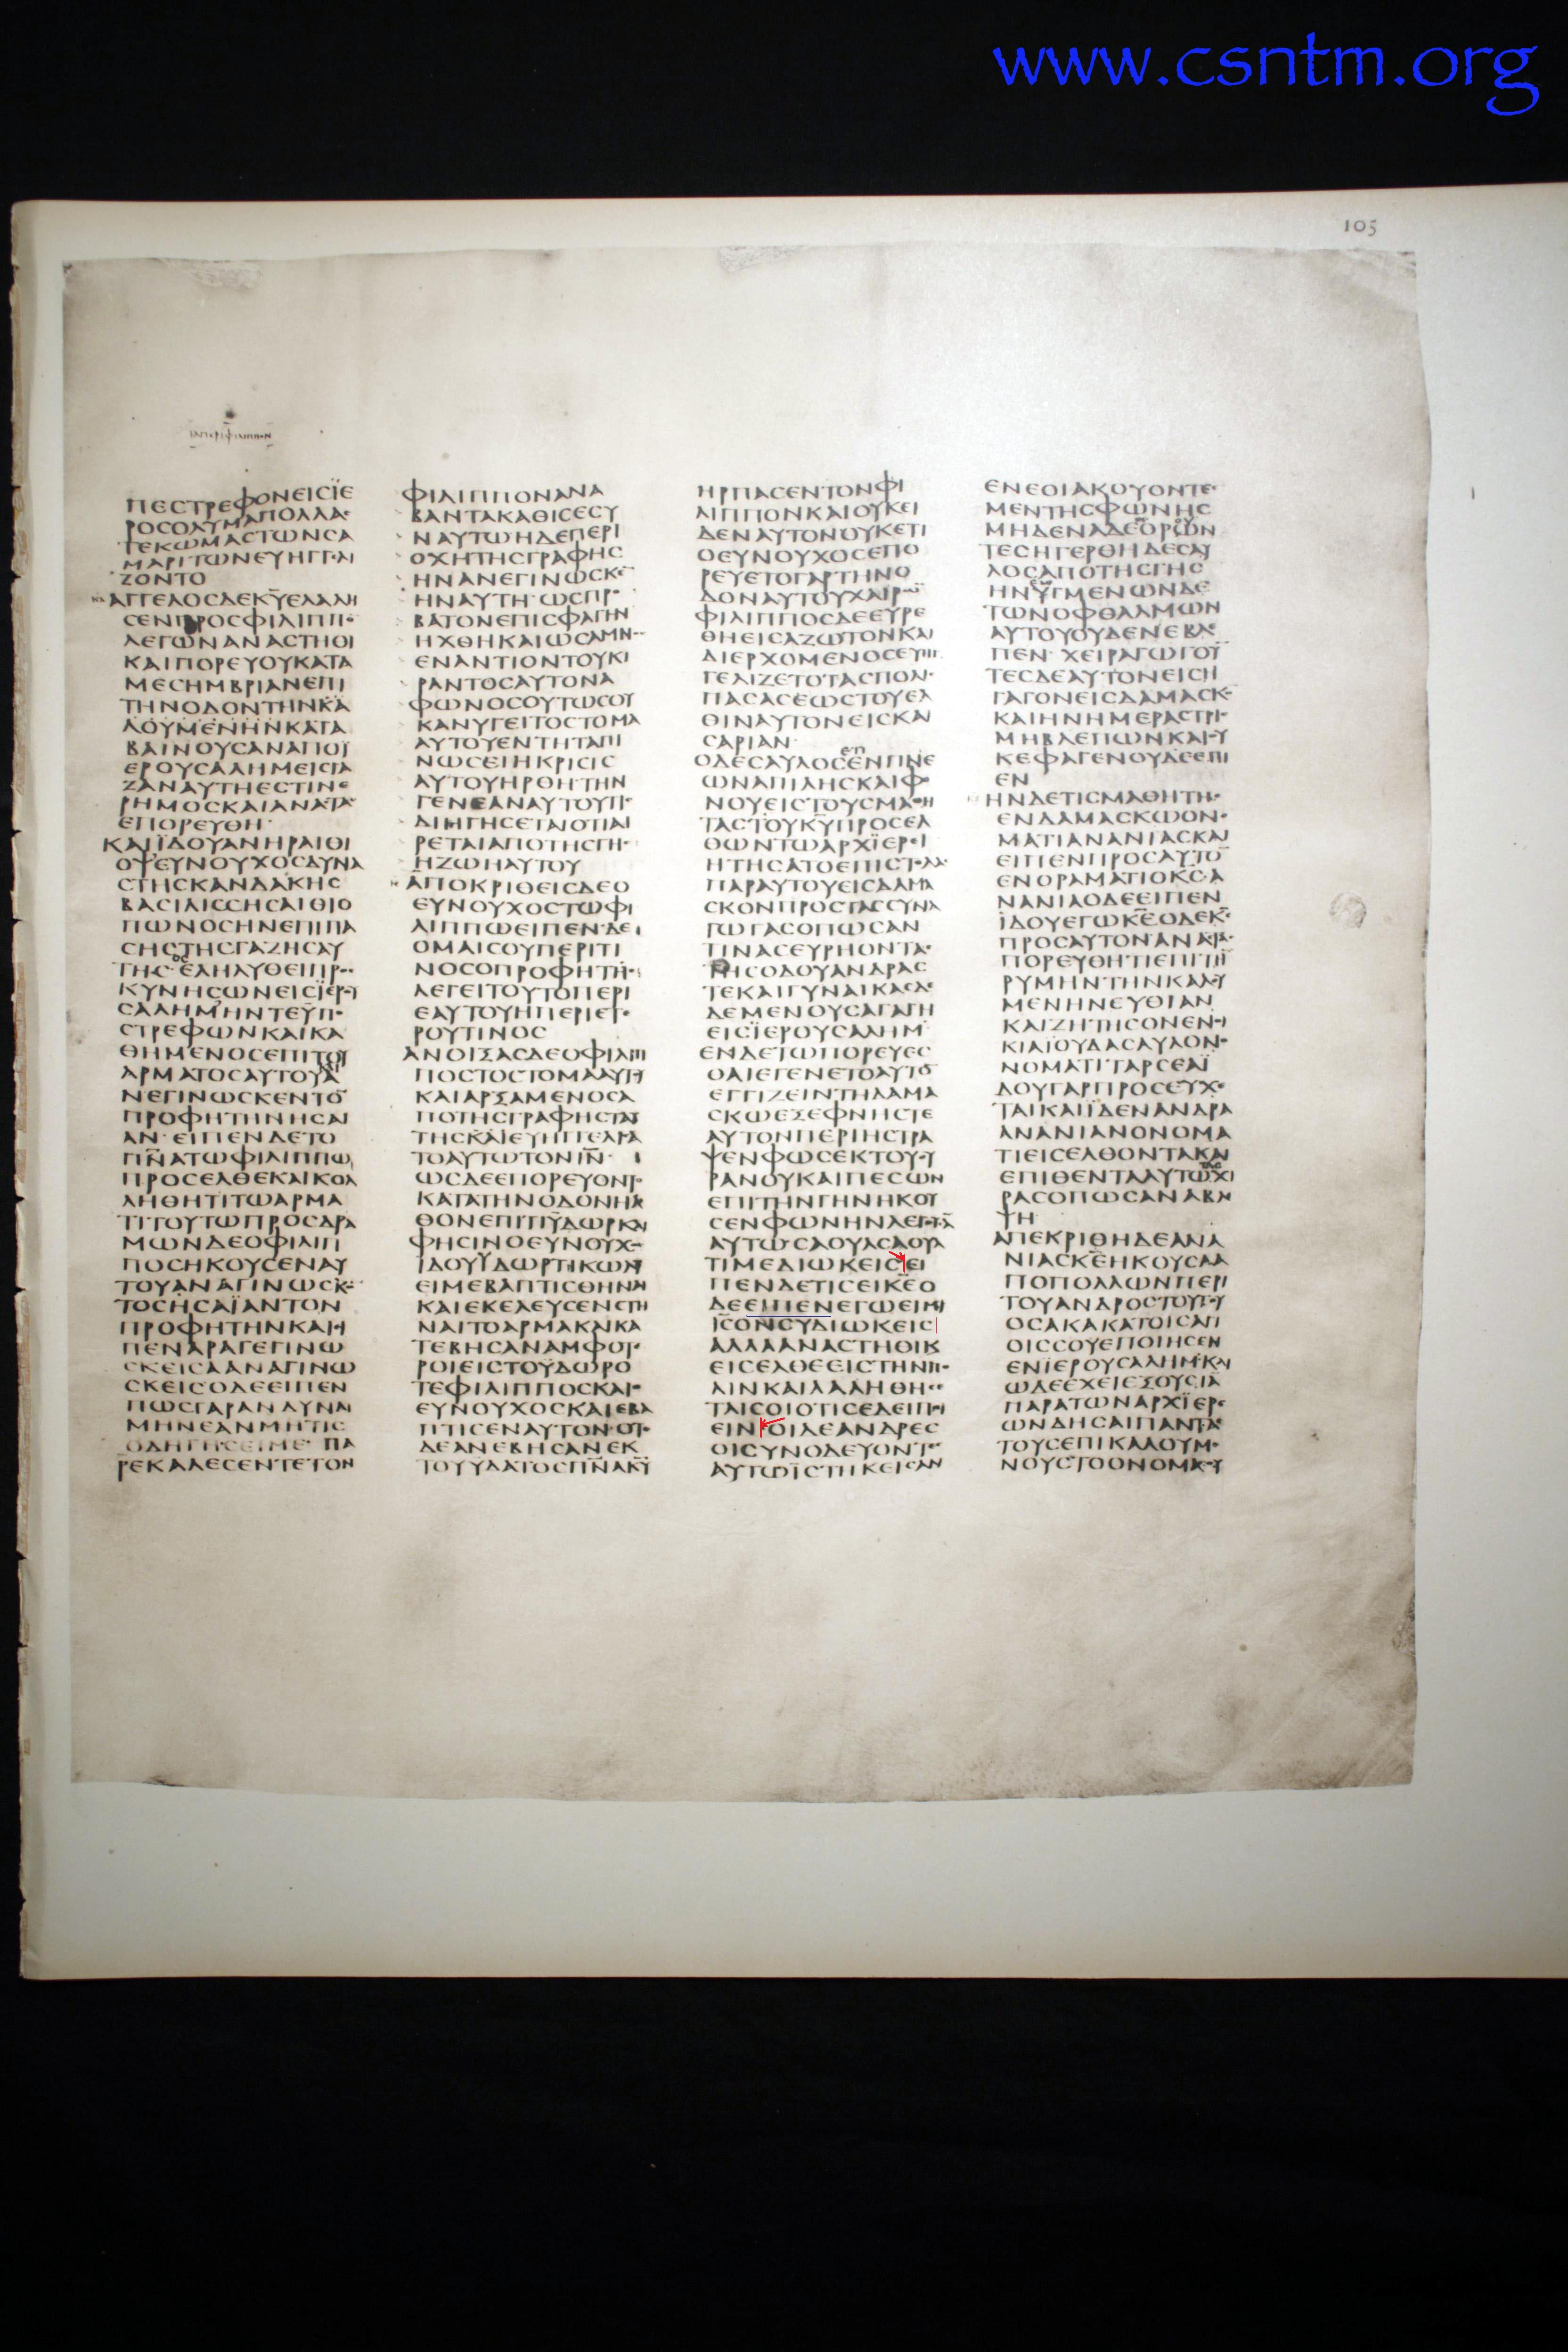 www.csntm.org
105
ΠΕϹΤΡΕΦΟΝΕΙϹΪΕ
ΡΟϹΟΛΥΜΑΠΟΛΛΑ
ΤΕΚΩΜΑϹΤΩΝϹΑ
ΜΑΡΙΤΩΝΕΥΗΓΓΕΛΙ
ΖΟΝΤΟ
ΑΓΓΕΛΟϹΔΕΚΥ̅ΕΛΑΛΗ
ϹΕΝΠΡΟϹΦΙΛΙΠΠΟ
ΛΕΓΩΝΑΝΑϹΤΗΘΙ
ΚΑΙΠΟΡΕΥΟΥΚΑΤΑ
ΜΕϹΗΜΒΡΙΑΝΕΠΙ
ΤΗΝΟΔΟΝΤΗΝΚΑ
ΛΟΥΜΕΝΗΝΚΑΤΑ
ΒΑΙΝΟΥϹΑΝΑΠΟΪ
ΕΡΟΥϹΑΛΗΜΕΙϹΓΑ
ΖΑΝΑΥΤΗΕϹΤΙΝΕ
ΡΗΜΟϹΚΑΙΑΝΑϹΤΑϹ
ΕΠΟΡΕΥΘΗ
ΚΑΙΪΔΟΥΑΝΗΡΑΙΘΙ
ΟΨΕΥΝΟΥΧΟϹΔΥΝΑ
ϹΤΗϹΚΑΝΔΑΚΗϹ
ΒΑϹΙΛΙϹϹΗϹΑΙΘΙΟ
ΠΩΝΟϹΗΝΕΠΙΠΑ
ϹΗϹΤΗϹΓΑΖΗϹΑΥ
ΤΗϹΟϹΕΛΗΛΥΘΕΙΠΡΟϹ
ΚΥΝΗϹΩΝΕΙϹΪΕΡΟΥ
ϹΑΛΗΜΗΝΤΕΥΠΟ
ϹΤΡΕΦΩΝΚΑΙΚΑ
ΘΗΜΕΝΟϹΕΠΙΤΟΥ
ΑΡΜΑΤΟϹΑΥΤΟΥΑ
ΝΕΓΙΝΩϹΚΕΝΤΟ̅
ΠΡΟΦΗΤΗΝΗϹΑΙ
ΑΝ ΕΙΠΕΝΔΕΤΟ
ΠΝ̅ΑΤΩΦΙΛΙΠΠΩ
ΠΡΟϹΕΛΘΕΚΑΙΚΟΛ
ΛΗΘΗΤΙΤΩΑΡΜΑ
ΤΙΤΟΥΤΩΠΡΟϹΔΡΑ
ΜΩΝΔΕΟΦΙΛΙΠ
ΠΟϹΗΚΟΥϹΕΝΑΥ
ΤΟΥΑΝΑΓΙΝΩϹΚΟ
ΤΟϹΗϹΑΪΑΝΤΟΝ
ΠΡΟΦΗΤΗΝΚΑΙΕΙ
ΠΕΝΑΡΑΓΕΓΙΝΩ
ϹΚΕΙϹΑΑΝΑΓΙΝΩ
ϹΚΕΙϹΟΔΕΕΙΠΕΝ
ΠΩϹΓΑΡΑΝΔΥΝΑΙ
ΜΗΝΕΑΝΜΗΤΙϹ
ΟΔΗΓΗϹΕΙΜΕ ΠΑ
ΡΕΚΑΛΕϹΕΝΤΕΤΟΝ
ΦΙΛΙΠΠΟΝΑΝΑ
ΒΑΝΤΑΚΑΘΙϹΕϹΥ
ΝΑΥΤΩΗΔΕΠΕΡΙ
ΟΧΗΤΗϹΓΡΑΦΗϹ
ΗΝΑΝΕΓΙΝΩϹΚΕ̅
ΗΝΑΥΤΗ ΩϹΠΡΟ
ΒΑΤΟΝΕΠΙϹΦΑΓΗΝ
ΗΧΘΗΚΑΙΩϹΑΜΝΟϹ
ΕΝΑΝΤΙΟΝΤΟΥΚΙ
ΡΑΝΤΟϹΑΥΤΟΝΑ
ΦΩΝΟϹΟΥΤΩϹΟΥ
ΚΑΝΥΓΕΙΤΟϹΤΟΜΑ
ΑΥΤΟΥΕΝΤΗΤΑΠΙ
ΝΩϹΕΙΗΚΡΙϹΙϹ
ΑΥΤΟΥΗΡΘΗ ΤΗΝ
ΓΕΝΕΑΝΑΥΤΟΥΤΙϹ
ΔΙΗΓΗϹΕΤΑΙΟΤΙΑΙ
ΡΕΤΑΙΑΠΟΤΗϹΓΗϹ
ΗΖΩΗΑΥΤΟΥ
ΑΠΟΚΡΙΘΕΙϹΔΕΟ
ΕΥΝΟΥΧΟϹΤΩΦΙ
ΛΙΠΠΩΕΙΠΕΝ ΔΕ
ΟΜΑΙϹΟΥΠΕΡΙΤΙ
ΝΟϹΟΠΡΟΦΗΤΗϹ
ΛΕΓΕΙΤΟΥΤΟΠΕΡΙ
ΕΑΥΤΟΥΗΠΕΡΙΕΤΕ
ΡΟΥΤΙΝΟϹ
ΑΝΟΙΞΑϹΔΕΟΦΙΛΙΠ
ΠΟϹΤΟϹΤΟΜΑΑΥΤΟΥ
ΚΑΙΑΡΞΑΜΕΝΟϹΑ
ΠΟΤΗϹΓΡΑΦΗϹΤΑΥ
ΤΗϹΚΑΙΕΥΗΓΓΕΛΙϹΑ
ΤΟΑΥΤΩΤΟΝΙΝ̅
ΩϹΔΕΕΠΟΡΕΥΟΝΤΟ
ΚΑΤΑΤΗΝΟΔΟΝΗΛ
ΘΟΝΕΠΙΤΙΫΔΩΡΚΑΙ
ΦΗϹΙΝΟΕΥΝΟΥΧΟϹ
ΪΔΟΥΫΔΩΡΤΙΚΩΛΥ
ΕΙΜΕΒΑΠΤΙϹΘΗΝΑΙ
ΚΑΙΕΚΕΛΕΥϹΕΝϹΤΗ
ΝΑΙΤΟΑΡΜΑΚΑΙΚΑ
ΤΕΒΗϹΑΝΑΜΦΟΤΕ
ΡΟΙΕΙϹΤΟΫΔΩΡΟ
ΤΕΦΙΛΙΠΠΟϹΚΑΙΟ
ΕΥΝΟΥΧΟϹΚΑΙΕΒΑ
ΠΤΙϹΕΝΑΥΤΟΝ ΟΤΕ
ΔΕΑΝΕΒΗϹΑΝΕΚ
ΤΟΥΫΔΑΤΟϹΠΝ̅ΑΚΥ̅
ΗΡΠΑϹΕΝΤΟΝΦΙ
ΛΙΠΠΟΝΚΑΙΟΥΚΕΙ
ΔΕΝΑΥΤΟΝΟΥΚΕΤΙ
ΟΕΥΝΟΥΧΟϹΕΠΟ
ΡΕΥΕΤΟΓΑΡΤΗΝΟ
ΔΟΝΑΥΤΟΥΧΑΙΡΩ̅
ΦΙΛΙΠΠΟϹΔΕΕΥΡΕ
ΘΗΕΙϹΑΖΩΤΟΝΚΑΙ
ΔΙΕΡΧΟΜΕΝΟϹΕΥΗΓ
ΓΕΛΙΖΕΤΟΤΑϹΠΟΛΙϹ
ΠΑϹΑϹΕΩϹΤΟΥΕΛ
ΘΙΝΑΥΤΟΝΕΙϹΚΑΙ
ϹΑΡΙΑΝ
ΟΔΕϹΑΥΛΟϹΕΝΠΝΕ
ΩΝΑΠΙΛΗϹΚΑΙΦΟ
ΝΟΥΕΙϹΤΟΥϹΜΑΘΗ
ΤΑϹΤΟΥΚΥ̅ΠΡΟϹΕΛ
ΘΩΝΤΩΑΡΧΪΕΡΕΙ
ΗΤΗϹΑΤΟΕΠΙϹΤΟΛΑϹ
ΠΑΡΑΥΤΟΥΕΙϹΔΑΜΑ
ϹΚΟΝΠΡΟϹΤΑϹϹΥΝΑ
ΓΩΓΑϹΟΠΩϹΑΝ
ΤΙΝΑϹΕΥΡΗΟΝΤΑϹ
ΤΗϹΟΔΟΥΑΝΔΡΑϹ
ΤΕΚΑΙΓΥΝΑΙΚΑϹΔΕ
ΔΕΜΕΝΟΥϹΑΓΑΓΗ
ΕΙϹΪΕΡΟΥϹΑΛΗΜ
ΕΝΔΕΤΩΠΟΡΕΥΕϹ
ΘΑΙΕΓΕΝΕΤΟΑΥΤΟ̅
ΕΓΓΙΖΕΙΝΤΗΔΑΜΑ
ϹΚΩΕΞΕΦΝΗϹΤΕ
ΑΥΤΟΝΠΕΡΙΗϹΤΡΑ
ΨΕΝΦΩϹΕΚΤΟΥΟΥ
ΡΑΝΟΥΚΑΙΠΕϹΩΝ
ΕΠΙΤΗΝΓΗΝΗΚΟΥ
ϹΕΝΦΩΝΗΝΛΕΓΟΥϹΑ
ΑΥΤΩϹΑΟΥΛϹΑΟΥΛ
ΤΙΜΕΔΙΩΚΕΙϹΕΙ
ΠΕΝΔΕΤΙϹΕΙΚΕ̅Ο
ΔΕΕΙΠΕΝΕΓΩΕΙΜΙ
ΙϹ̅ΟΝϹΥΔΙΩΚΕΙϹ
ΑΛΛΑΑΝΑϹΤΗΘΙΚ
ΕΙϹΕΛΘΕΕΙϹΤΗΝΠΟ
ΛΙΝΚΑΙΛΑΛΗΘΗϹΕ
ΤΑΙϹΟΙΟΤΙϹΕΔΕΙΠΟΙ
ΕΙΝΟΙΔΕΑΝΔΡΕϹ
ΟΙϹΥΝΟΔΕΥΟΝΤΕϹ
ΑΥΤΩΪϹΤΗΚΕΙϹΑΝ
ΕΝΕΟΙΑΚΟΥΟΝΤΕϹ
ΜΕΝΤΗϹΦΩΝΗϹ
ΜΗΔΕΝΑΔΕΟΡΩΝ
ΤΕϹΗΓΕΡΘΗΔΕϹΑΥ
ΛΟϹΑΠΟΤΗϹΓΗϹ
ΗΝΥΓΜΕΝΩΝΔΕ
ΤΩΝΟΦΘΑΛΜΩΝ
ΑΥΤΟΥΟΥΔΕΝΕΒΛΕ
ΠΕΝ ΧΕΙΡΑΓΩΓΟΥ̅
ΤΕϹΔΕΑΥΤΟΝΕΙϹΗ
ΓΑΓΟΝΕΙϹΔΑΜΑϹΚΟ̅
ΚΑΙΗΝΗΜΕΡΑϹΤΡΙϹ
ΜΗΒΛΕΠΩΝΚΑΙΟΥ
ΚΕΦΑΓΕΝΟΥΔΕΕΠΙ
ΕΝ
ΗΝΔΕΤΙϹΜΑΘΗΤΗϹ
ΕΝΔΑΜΑϹΚΩΟΝΟ
ΜΑΤΙΑΝΑΝΙΑϹΚΑΙ
ΕΙΠΕΝΠΡΟϹΑΥΤΟ̅
ΕΝΟΡΑΜΑΤΙΟΚϹ̅Α
ΝΑΝΙΑΟΔΕΕΙΠΕΝ
ΪΔΟΥΕΓΩΚΕ̅ΟΔΕΚϹ̅
ΠΡΟϹΑΥΤΟΝΑΝΑϹΤΑϹ
ΠΟΡΕΥΘΗΤΙΕΠΙΤΗ̅
ΡΥΜΗΝΤΗΝΚΑΛΟΥ
ΜΕΝΗΝΕΥΘΙΑΝ
ΚΑΙΖΗΤΗϹΟΝΕΝΟΙ
ΚΙΑΪΟΥΔΑϹΑΥΛΟΝΟ
ΝΟΜΑΤΙΤΑΡϹΕΑΪ
ΔΟΥΓΑΡΠΡΟϹΕΥΧΕ
ΤΑΙΚΑΙΪΔΕΝΑΝΔΡΑ
ΑΝΑΝΙΑΝΟΝΟΜΑ
ΤΙΕΙϹΕΛΘΟΝΤΑΚΑΙ
ΕΠΙΘΕΝΤΑΑΥΤΩΧΙ
ΡΑϹΟΠΩϹΑΝΑΒΛΕ
ΨΗ
ΑΠΕΚΡΙΘΗΔΕΑΝΑ
ΝΙΑϹΚΕ̅ΗΚΟΥϹΑΑ
ΠΟΠΟΛΛΩΝΠΕΡΙ
ΤΟΥΑΝΔΡΟϹΤΟΥΤΟΥ
ΟϹΑΚΑΚΑΤΟΙϹΑΓΙ
ΟΙϹϹΟΥΕΠΟΙΗϹΕΝ
ΕΝΪΕΡΟΥϹΑΛΗΜΚΑΙ
ΩΔΕΕΧΕΙΕΞΟΥϹΙΑ̅
ΠΑΡΑΤΩΝΑΡΧΪΕΡΕ
ΩΝΔΗϹΑΙΠΑΝΤΑϹ
ΤΟΥϹΕΠΙΚΑΛΟΥΜΕ
ΝΟΥϹΤΟΟΝΟΜΑϹΟΥ